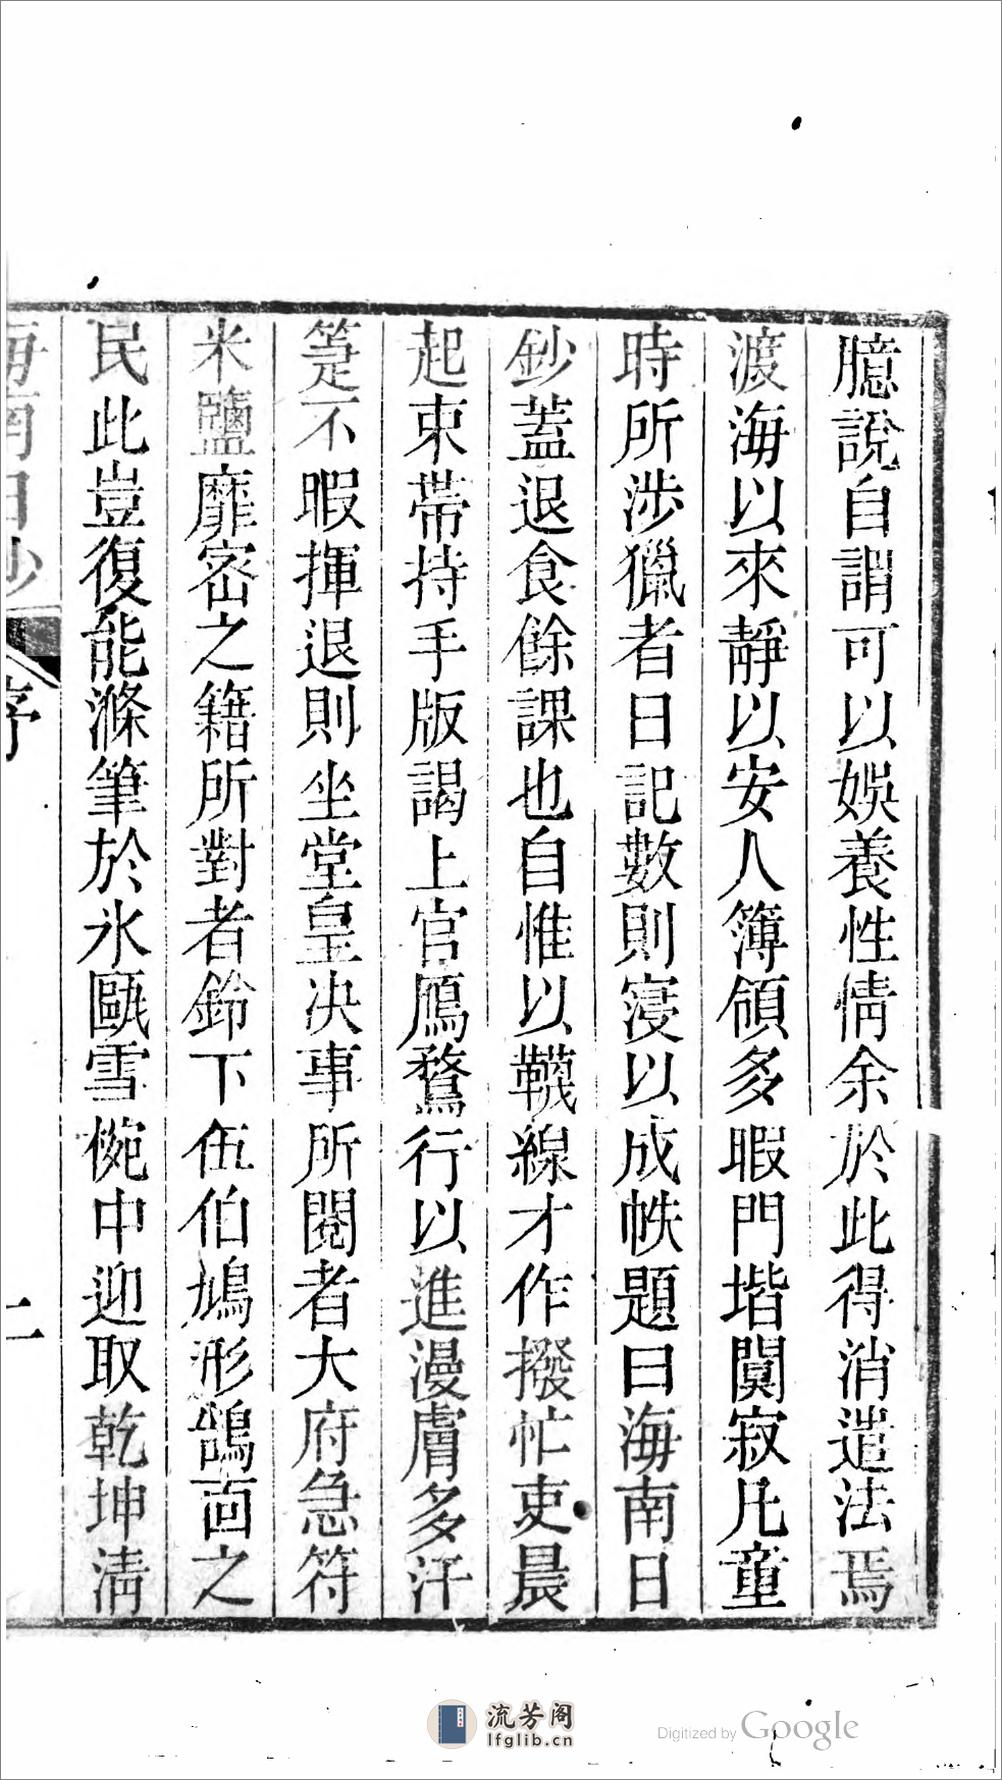 臆說自謂可以娛養性情余於此得消遣法焉
渡海以來靜以安人簿領多暇門堦闃寂凡童
時所涉獵者日記數則寖以成帙題曰海南日
鈔蓋退食餘課也自惟以韈線才作撥忙吏晨
起束帶持手版謁上官鴈鶩行以進漫膚多汗
箑不暇揮退則坐堂皇決事所閱者大府急符
米鹽靡密之籍所對者鈴下伍伯鳩形鵠面之
民此豈復能滌筆於氷甌雪椀中迎取乾坤清
海南日鈔
序
二
流芳阁
lfglib.cn
Digitized by Google